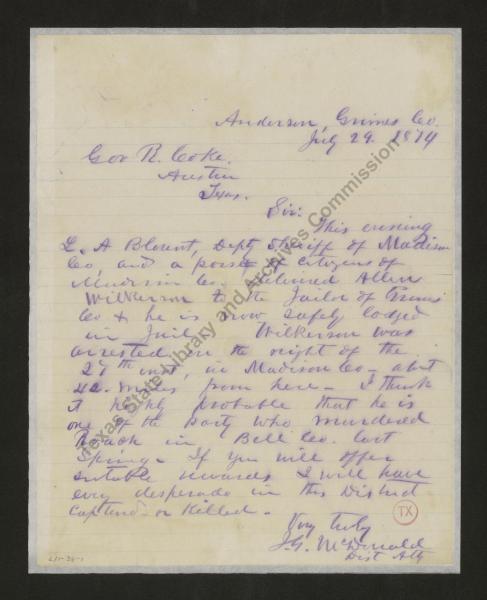 Anderson, Grimes Co.
July 29. 1874
Gov R. Coke.
Austin
Texas.
Sir:
This evening
L. A Blount, Depty Sheriff of Madison
Co, and a posse of citizens of
Madison Co. delivered Allen
Wilkerson to the Jailor of Grimes
Co & he is now safely lodged
in Jail. Wilkerson was
arrested on the night of the
27th inst, in Madison Co - abt
42 miles from here - I think
it highly probable that he is
one of the party who murdered
in Bell Co. last
Spring - If you will offer
suitable rewards I will have
evry desperado in this District
captured or killed -
Very truly
J.G. McDonald
Dist Atty
TX
Texas State Library and Archives Commission